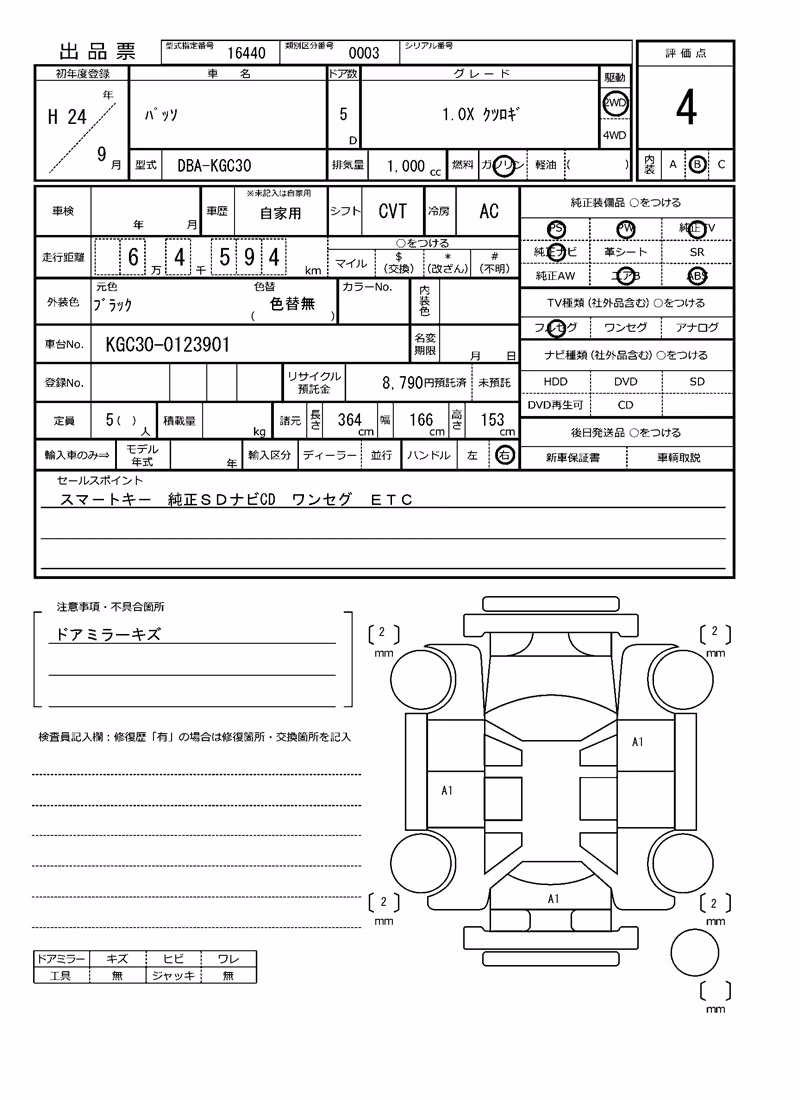 出品票 型式指定番号 16440 類別区分番号 0003 シリアル番号
評価点
4
内装 A B C
初年度登録 車名 ドア数 グレード 駆動
H 24 年 9 月 ﾊﾟｯｿ 5 D 1.0X ｸﾂﾛｷﾞ 2WD
4WD
型式 DBA-KGC30 排気量 1,000 cc 燃料 ガソリン 軽油 ( )
車検 年 月 車歴 ※未記入は自家用 自家用 シフト CVT 冷房 AC
走行距離 6 万 4 千 5 9 4 km ○をつける
マイル $ (交換) * (改ざん) # (不明)
外装色 元色 ﾌﾞﾗｯｸ 色替 ( 色替無 ) カラーNo. 内装色
車台No. KGC30-0123901 名変期限 月 日
登録No. リサイクル預託金 8,790円預託済 未預託
定員 5( ) 人 積載量 kg 諸元 長さ 364 cm 幅 166 cm 高さ 153 cm
輸入車のみ⇒ モデル年式 年 輸入区分 ディーラー 並行 ハンドル 左 右
純正装備品 ○をつける
PS PW 純正TV
純正ナビ 革シート SR
純正AW エアB ABS
TV種類(社外品含む)○をつける
フルセグ ワンセグ アナログ
ナビ種類(社外品含む)○をつける
HDD DVD SD
DVD再生可 CD
後日発送品 ○をつける
新車保証書 車輌取説
セールスポイント
スマートキー 純正ＳＤナビCD ワンセグ ＥＴＣ
注意事項・不具合箇所
ドアミラーキズ
検査員記入欄：修復歴「有」の場合は修復箇所・交換箇所を記入
ドアミラー キズ ヒビ ワレ
工具 無 ジャッキ 無
[ 2 ] mm
[ 2 ] mm
A1
A1
A1
[ 2 ] mm
[ 2 ] mm
[ ] mm